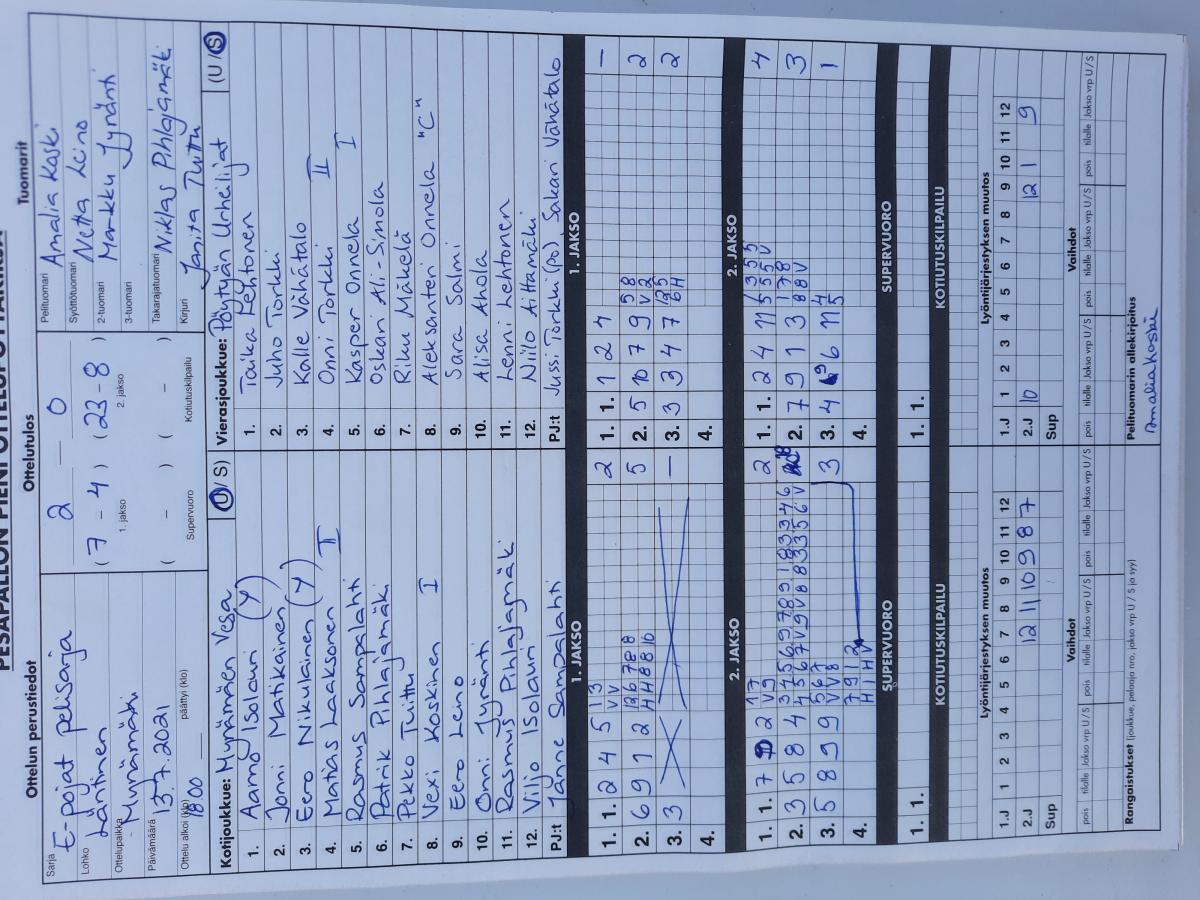 PESÄPALLON PIENI OTTELUPÖYTÄKIRJA
Ottelun perustiedot
Sarja E-pojat pelisarja
Lohko Läntinen
Ottelupaikka Mynämäki
Päivämäärä 13.7.2021
Ottelu alkoi (klo) 1800 päättyi (klo)
Ottelutulos
2 – 0
( 7 - 4 ) ( 23 - 8 )
1. jakso 2. jakso
( – ) ( – )
Supervuoro Kotiutuskilpailu
Tuomarit
Pelituomari Amalia Koski
Syöttötuomari Netta Leino
2-tuomari Markku Jyränti
3-tuomari
Takarajatuomari Niklas Pihlajamäki
Kirjuri Janita Tuittu
Kotijoukkue: Mynämäen Vesa (U / S)
1. Aamo Isolauri (Y)
2. Jonni Matikainen
3. Eero Nikulainen (Y)
4. Matias Laaksonen II
5. Rasmus Sampalahti
6. Patrik Pihlajamäki
7. Pekko Tuittu
8. Vexi Koskinen I
9. Eero Leino
10. Onni Jyränti
11. Rasmus Pihlajamäki
12. Viljo Isolauri
PJ:t Janne Sampalahti
Vierasjoukkue: Pöytyän Urheilijat (U / S)
1. Taika Lehtonen
2. Juho Torkki
3. Kalle Vähätalo
4. Onni Torkki II
5. Kasper Onnela I
6. Oskari Ali-Simola
7. Riku Mäkelä
8. Aleksanteri Onnela "C"
9. Sara Salmi
10. Alisa Ahola
11. Lenni Lehtonen
12. Niilo Aittamäki
PJ:t Jussi Torkki (po) Sakari Vähätalo
1. JAKSO
1. 1. 2 4 5 2
2. 6 9 1 2 5
3. 3 –
4.
1. JAKSO
1. 1. 1 2 4 –
2. 5 10 7 9 2
3. 3 3 4 7 2
4.
2. JAKSO
1. 1. 7 2 2
2. 3 5 8 4
3. 5 8 9 9 3
4.
2. JAKSO
1. 1. 2 4 11 4
2. 7 9 1 3 3
3. 4 6 11 1
4.
SUPERVUORO
1. 1.
SUPERVUORO
1. 1.
KOTIUTUSKILPAILU
KOTIUTUSKILPAILU
Lyöntijärjestyksen muutos
1.J 1 2 3 4 5 6 7 8 9 10 11 12
2.J 12 11 10 9 8 7
Sup
Lyöntijärjestyksen muutos
1.J 1 2 3 4 5 6 7 8 9 10 11 12
2.J 10 12 1 9
Sup
Vaihdot
pois tilalle Jakso vrp U / S pois tilalle Jakso vrp U / S pois tilalle Jakso vrp U / S pois tilalle Jakso vrp U / S
Vaihdot
pois tilalle Jakso vrp U / S pois tilalle Jakso vrp U / S pois tilalle Jakso vrp U / S pois tilalle Jakso vrp U / S
Rangaistukset (joukkue, pelaaja nro, jakso vrp U / S ja syy)
Pelituomarin allekirjoitus
Amalia Koski